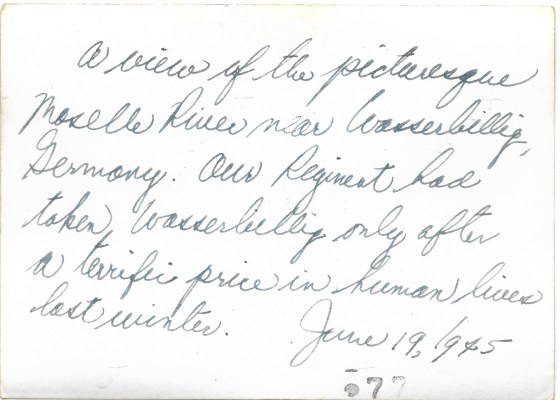 A view of the picturesque
Moselle River near Wasserbillig,
Germany. Our Regiment had
taken Wasserbillig only after
a terrific price in human lives
last winter. June 19, 1945
577